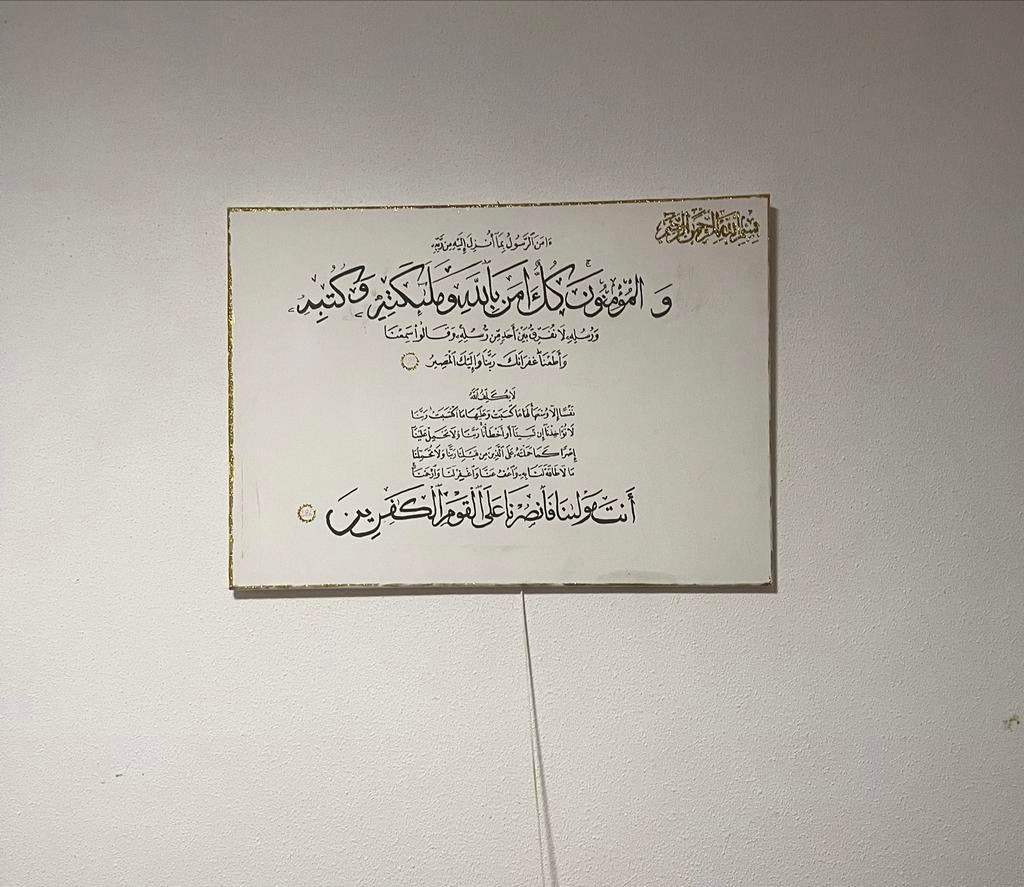 بِسْمِ ٱللَّهِ ٱلرَّحْمَٰنِ ٱلرَّحِيمِ
ءَامَنَ ٱلرَّسُولُ بِمَآ أُنزِلَ إِلَيْهِ مِن رَّبِّهِۦ
وَ الْمُؤْمِنُونَ كُلٌّ ءَامَنَ بِٱللَّهِ وَمَلَٰٓئِكَتِهِۦ وَكُتُبِهِۦ
وَرُسُلِهِۦ لَا نُفَرِّقُ بَيْنَ أَحَدٍ مِّن رُّسُلِهِۦ وَقَالُوا۟ سَمِعْنَا
وَأَطَعْنَا غُفْرَانَكَ رَبَّنَا وَإِلَيْكَ ٱلْمَصِيرُ
لَا يُكَلِّفُ ٱللَّهُ
نَفْسًا إِلَّا وُسْعَهَا لَهَا مَا كَسَبَتْ وَعَلَيْهَا مَا ٱكْتَسَبَتْ رَبَّنَا
لَا تُؤَاخِذْنَا إِن نَّسِينَا أَوْ أَخْطَأْنَا رَبَّنَا وَلَا تَحْمِلْ عَلَيْنَا
إِصْرًا كَمَا حَمَلْتَهُ عَلَى ٱلَّذِينَ مِن قَبْلِنَا رَبَّنَا وَلَا تُحَمِّلْنَا
مَا لَا طَاقَةَ لَنَا بِهِۦ وَٱعْفُ عَنَّا وَٱغْفِرْ لَنَا وَٱرْحَمْنَا
أَنتَ مَوْلَىٰنَا فَٱنصُرْنَا عَلَى ٱلْقَوْمِ ٱلْكَٰفِرِينَ